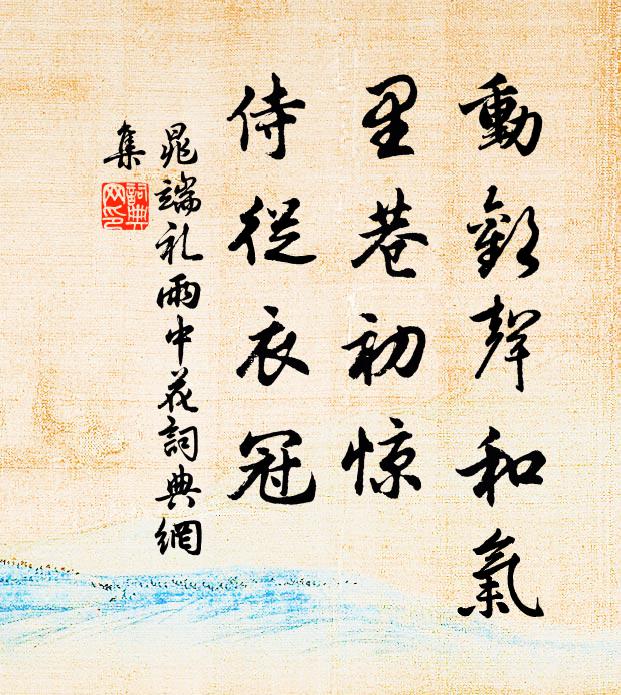 動歡聲和氣
里巷初惊
侍從衣冠
晁端礼雨中花詞典網
集
詞典
网印